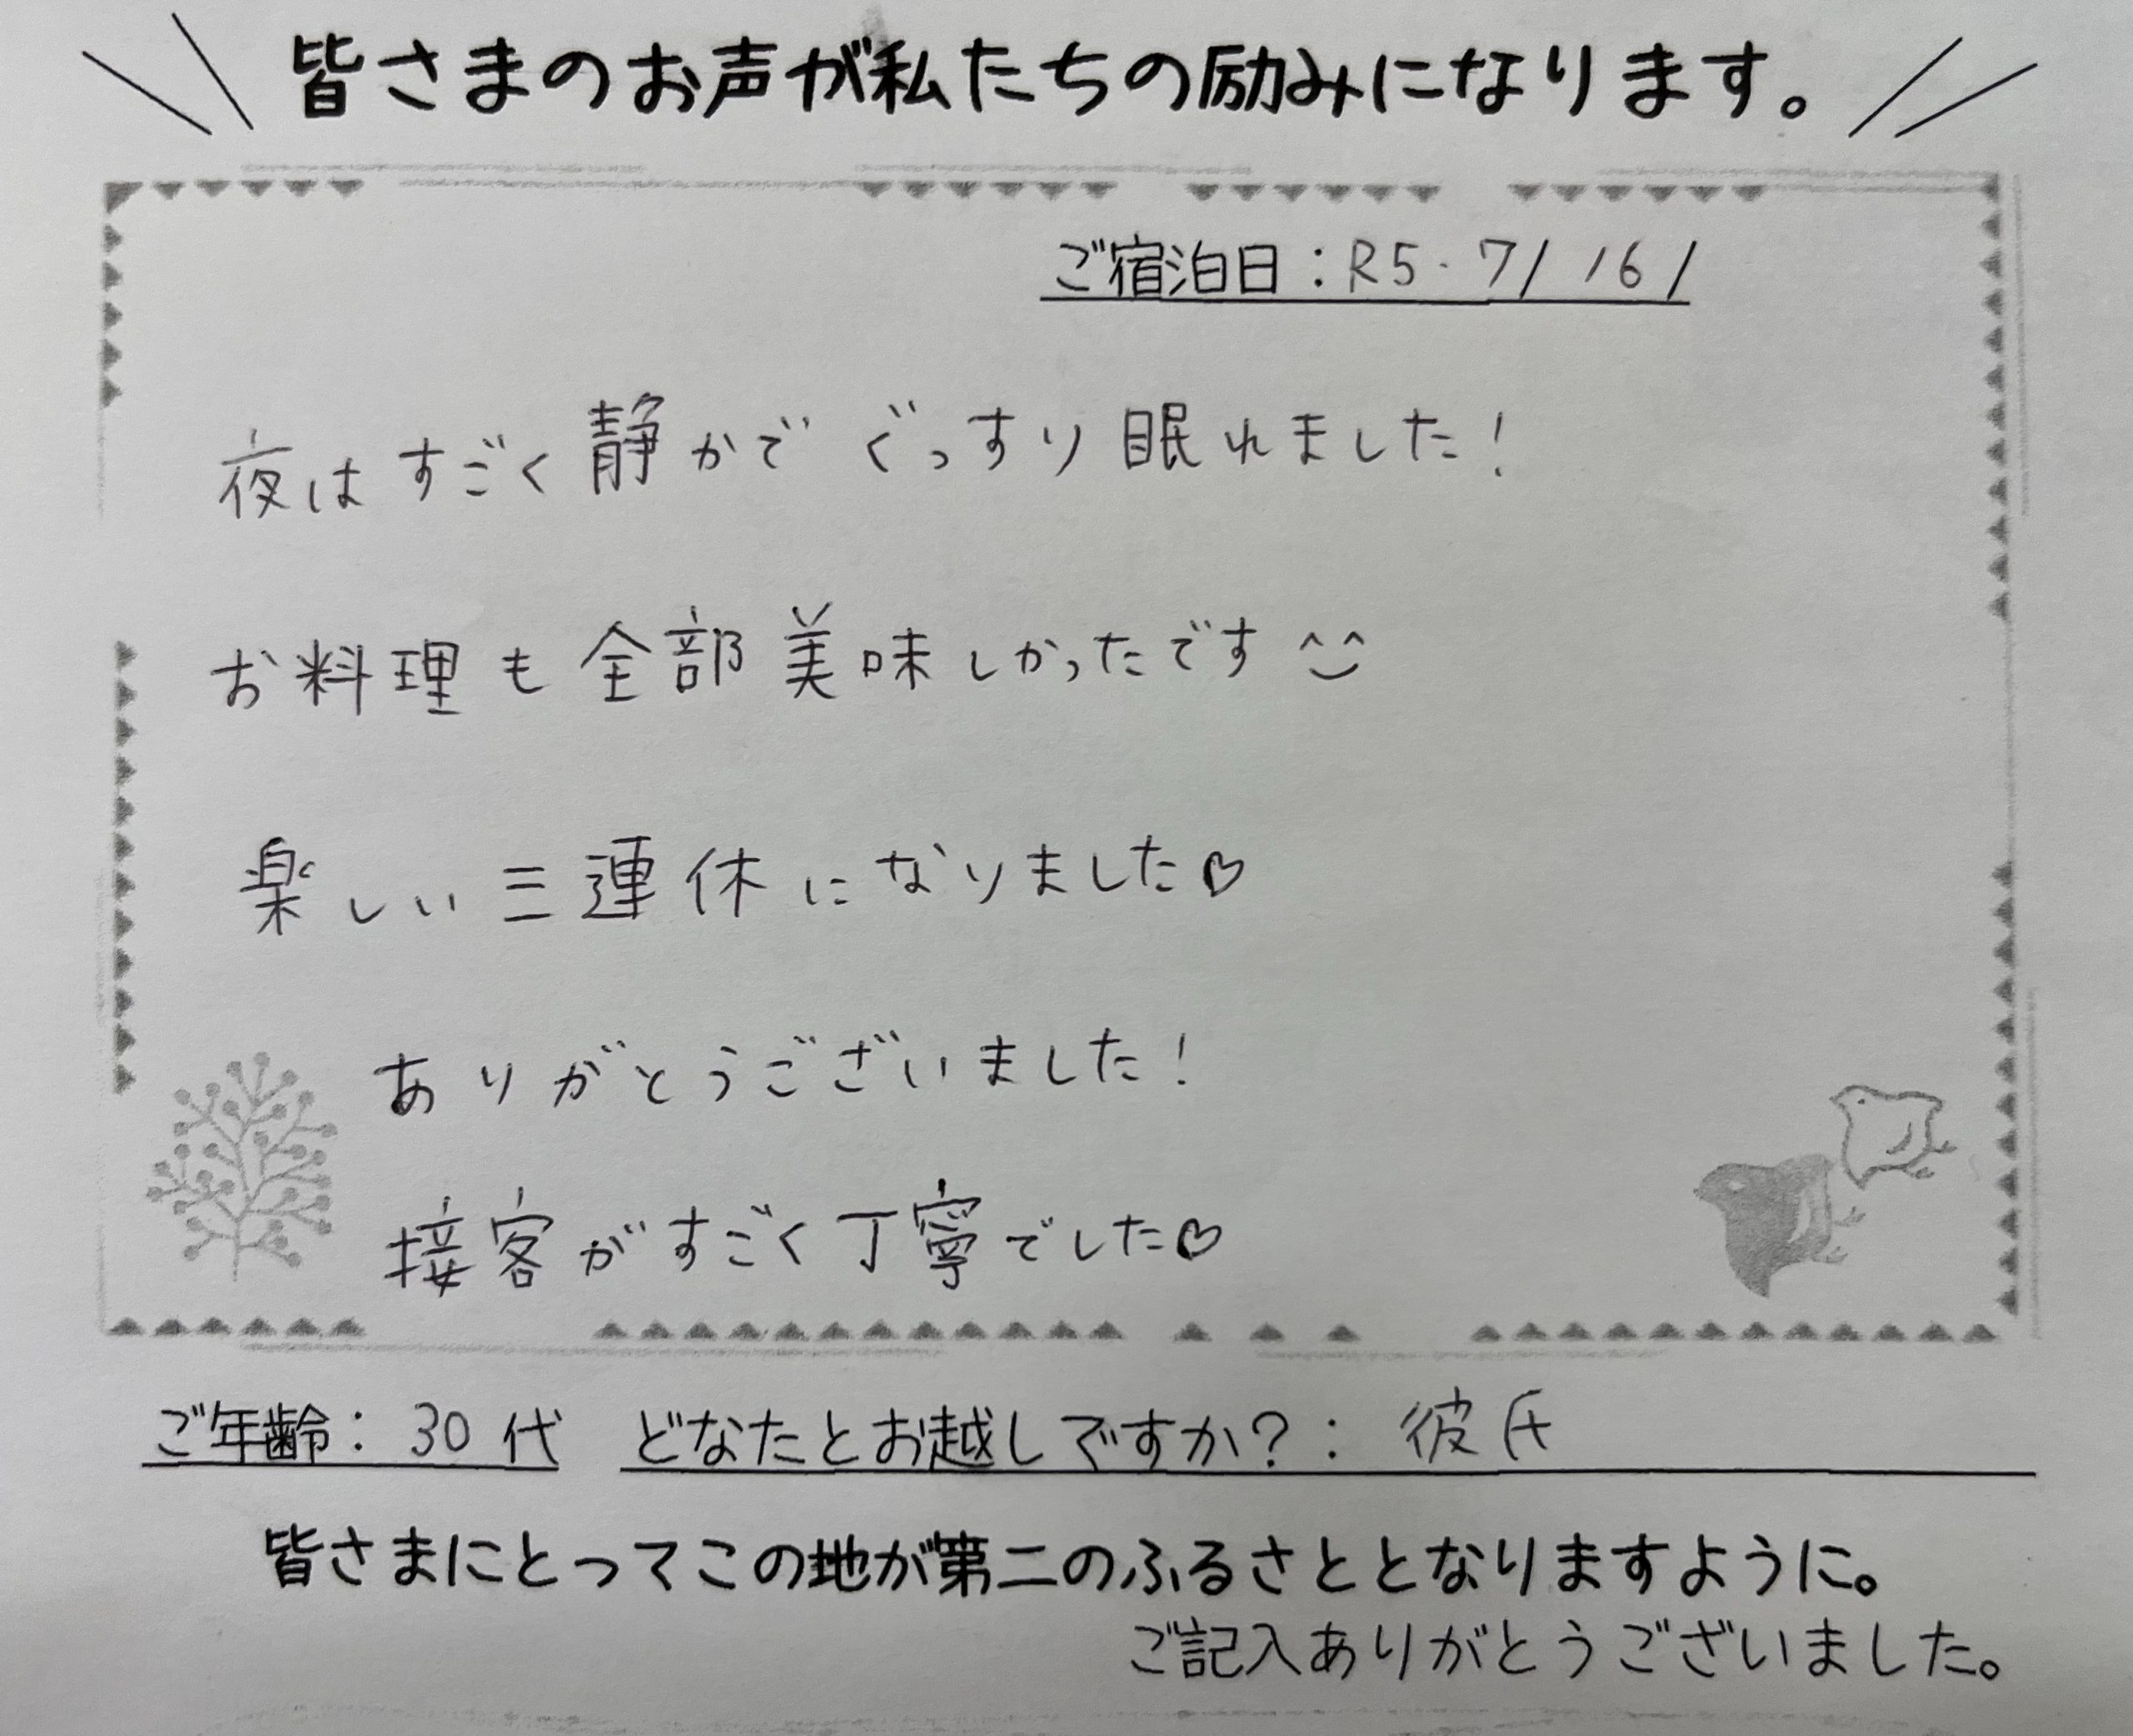 皆さまのお声が私たちの励みになります。
ご宿泊日：R5.7/16/
夜はすごく静かでぐっすり眠れました！
お料理も全部美味しかったです^^
楽しい三連休になりました♡
ありがとうございました！
接客がすごく丁寧でした♡
ご年齢：30代 どなたとお越しですか？：彼氏
皆さまにとってこの地が第二のふるさととなりますように。
ご記入ありがとうございました。